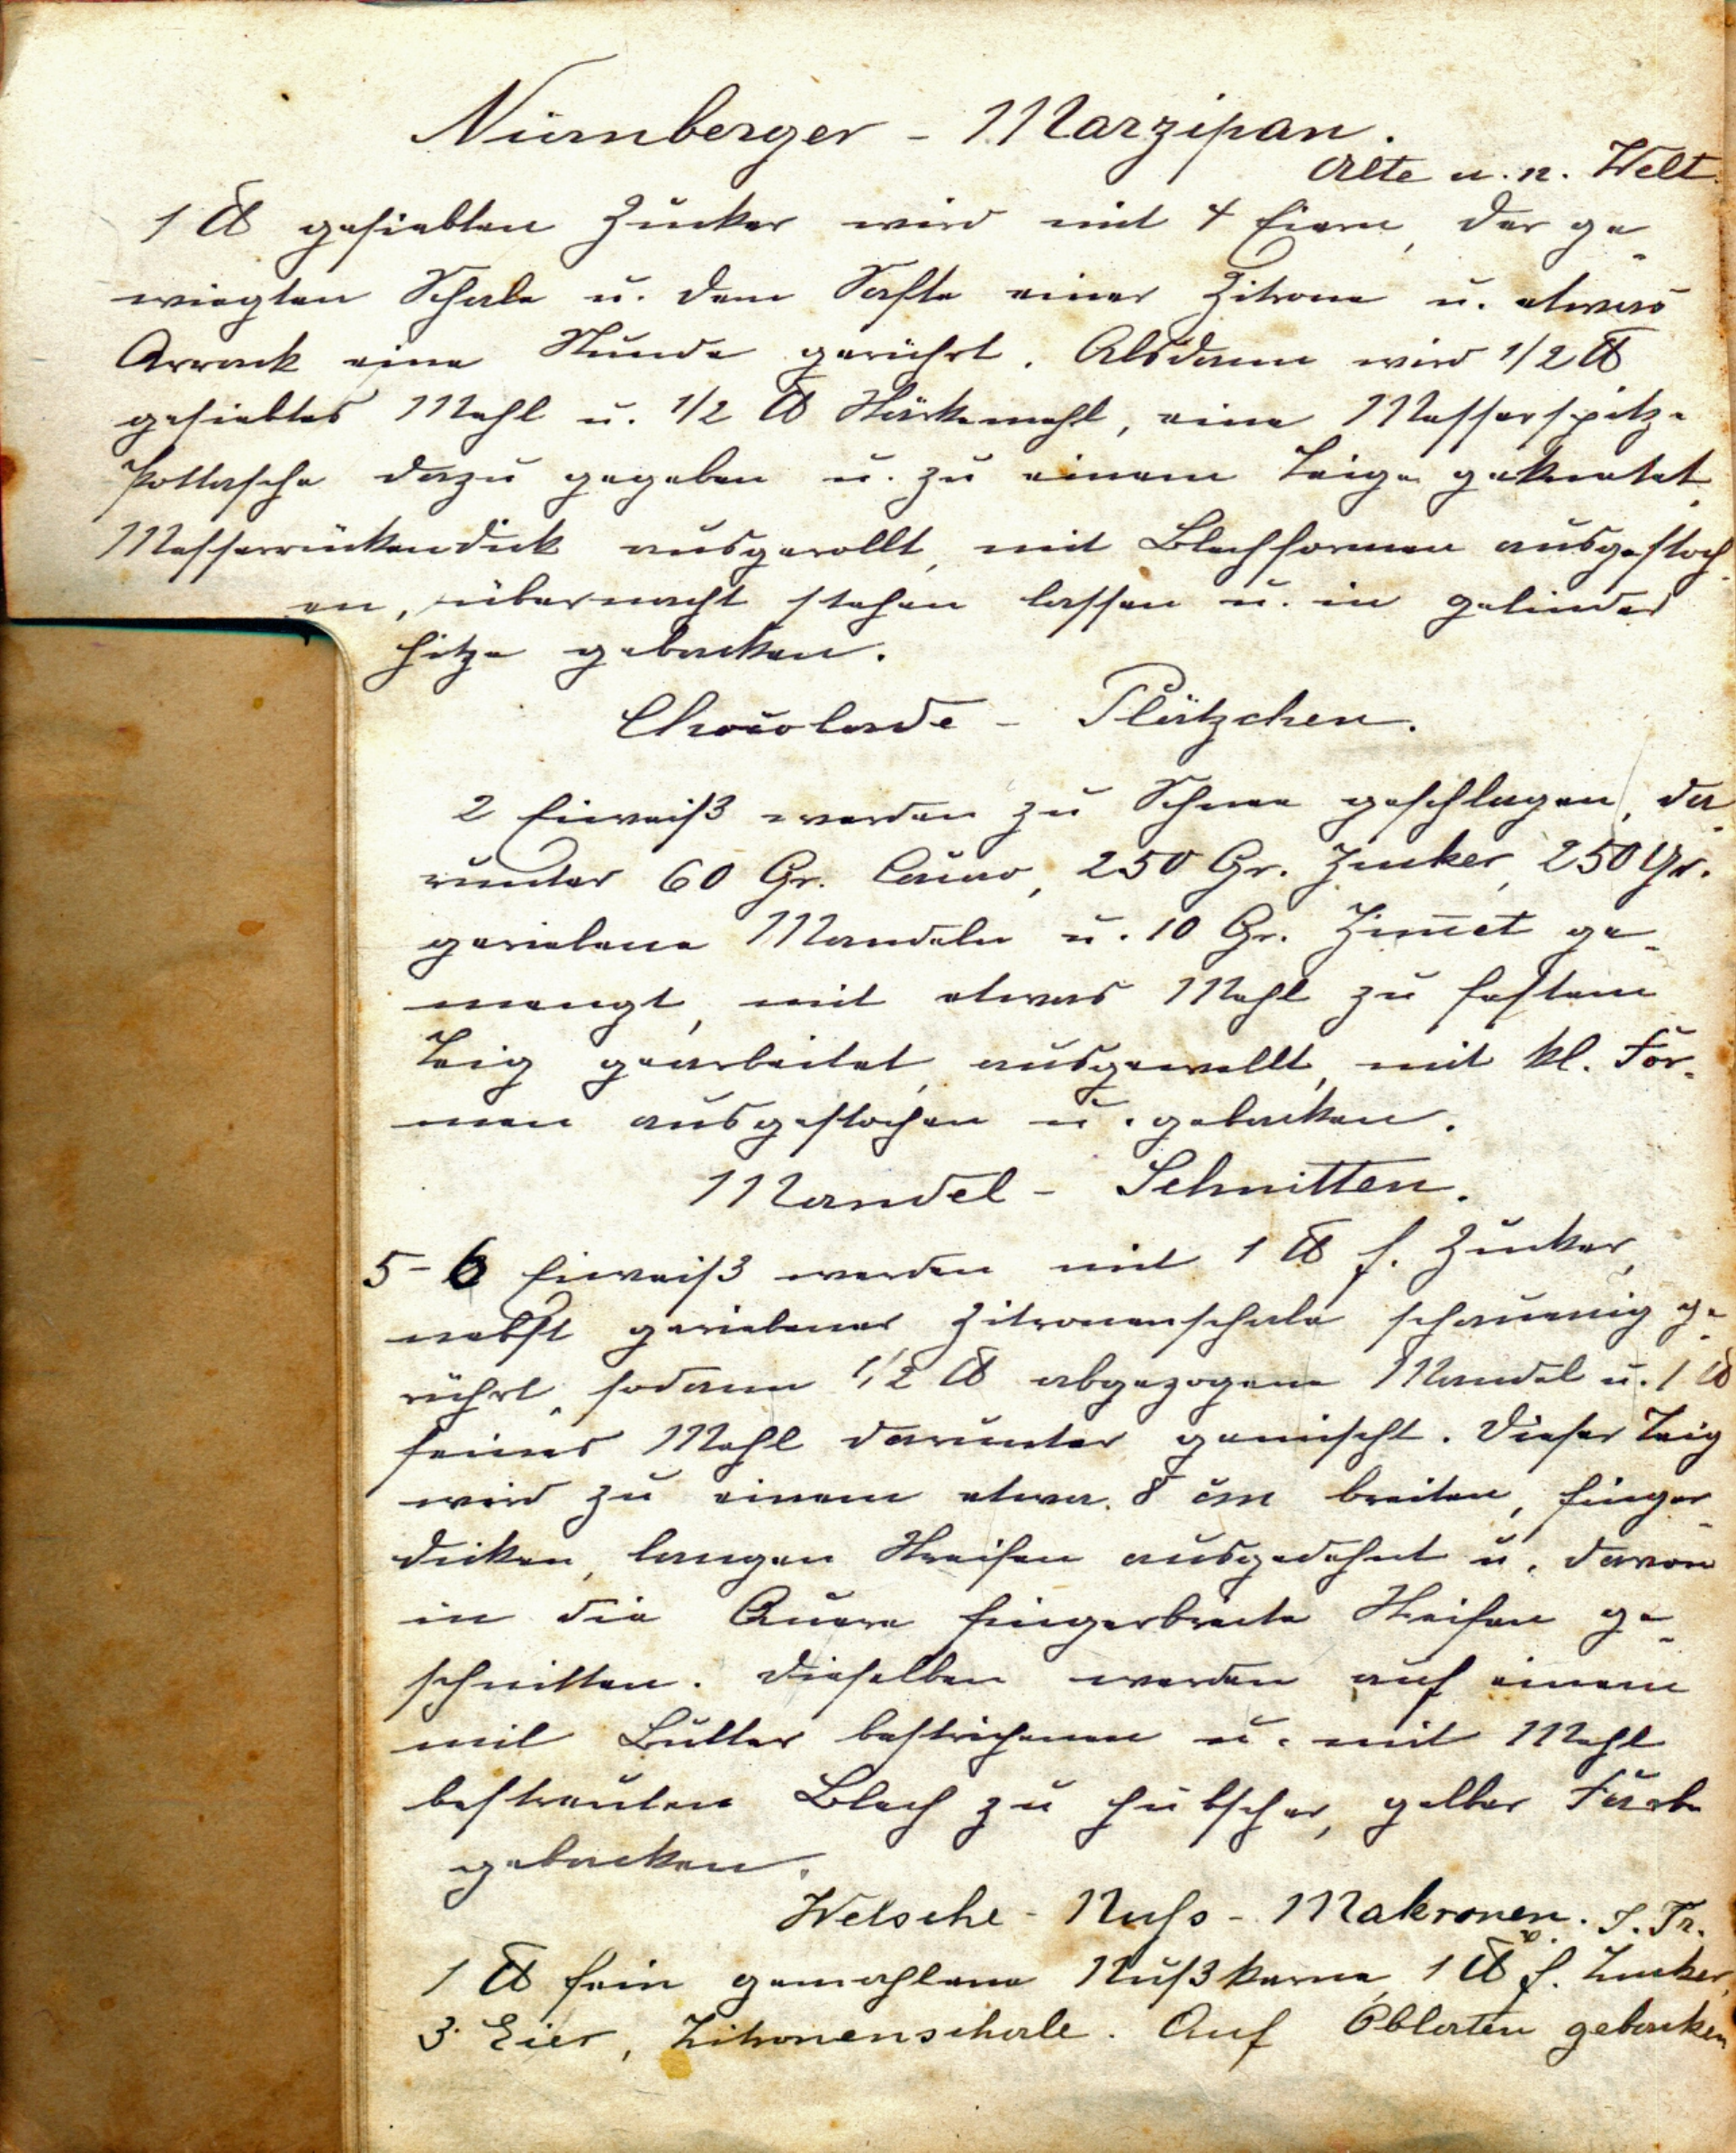 Nürnberger - Marzipan.
Alte u. n. Welt.
1 ℔ gesiebten Zucker wird mit 4 Eiern, der ge-
wiegten Schale u. dem Safte einer Zitrone u. etwas
Arrack eine Stunde gerührt. Alsdann wird 1/2 ℔
gesiebtes Mehl u. 1/2 ℔ Stärkemehl, eine Messerspitze
Pottasche dazu gegeben u. zu einem Teige geknetet,
Messerrückendick ausgerollt, mit Blechformen ausgestoch-
en, übernacht stehen lassen u. in gelinder
Hitze gebacken.
Chocolade - Plätzchen.
2 Eiweiß werden zu Schnee geschlagen, da-
runter 60 Gr. Cacao, 250 Gr. Zucker, 250 Gr.
geriebene Mandeln u. 10 Gr. Zim̄et ge-
mengt, mit etwas Mehl zu festem
Teig gearbeitet, ausgewellt, mit kl. For-
men ausgestochen u. gebacken.
Mandel - Schnitten.
5-6 Eiweiß werden mit 1 ℔ f. Zucker,
nebst geriebener Zitronenschale schaumig ge-
rührt, sodann 1/2 ℔ abgezogene Mandel u. 1 ℔
feines Mehl darunter gemischt. Dieser Teig
wird zu einem etwa 8 cm breiten, finger-
dicken, langen Streifen ausgedehnt u. davon
in die Quere fingerbreite Streifen ge-
schnitten. Dieselben werden auf einem
mit Butter bestrichenen u. mit Mehl
bestreuten Blech zu hübscher, gelber Farbe
gebacken.
Welsche - Nuss - Makronen. J. Tr.
1 ℔ fein gemahlene Nußkerne, 1 ℔ f. Zucker,
3 Eier, Zitronenschale. Auf Oblaten gebacken